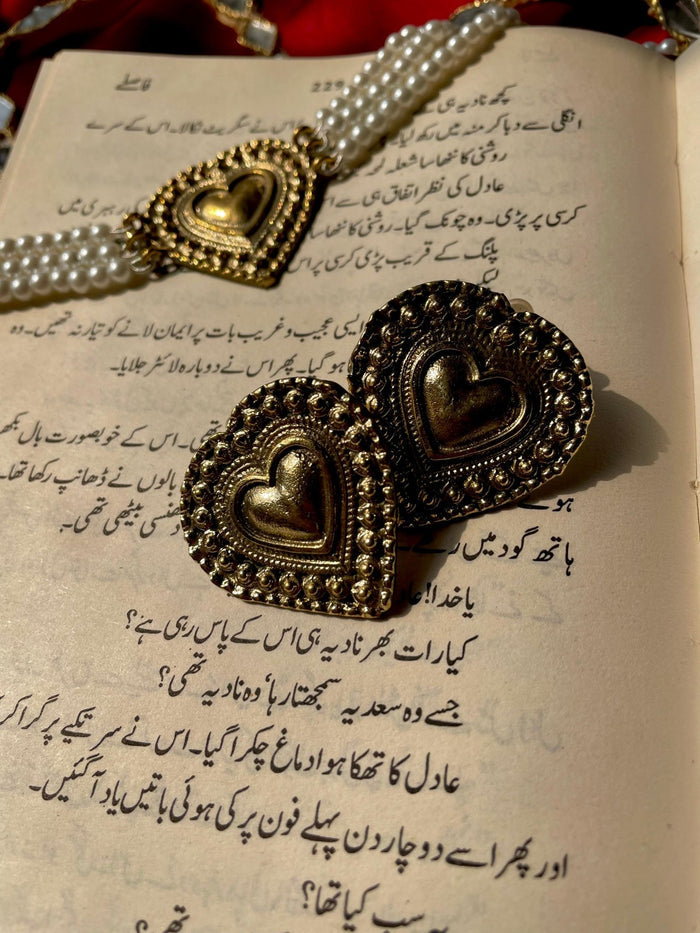 فاصلے 229
کچھ نادیہ ہی کے
انگلی سے دبا کر منہ میں رکھ لیا۔ اس نے سگریٹ نکالا۔ اس کے سرے
روشنی کا ننھا سا شعلہ
عادل کی نظر اتفاق ہی سے اس کی رہبری میں
کرسی پر پڑی۔ وہ چونک گیا۔ روشنی کا ننھا سا
پلنگ کے قریب پڑی کرسی پر اس
لیکن
ایسی عجیب و غریب بات پر ایمان لانے کو تیار نہ تھیں۔ وہ
ہو گیا۔ پھر اس نے دوبارہ لائٹر جلایا۔
تھی۔ اس کے خوبصورت بال بکھر
بالوں نے ڈھانپ رکھا تھا۔
دھنسی بیٹھی تھی۔
ہوئے
ہاتھ گود میں رکھے
یا خدا!
کیا رات بھر نادیہ ہی اس کے پاس رہی ہے؟
جسے وہ سعدیہ سمجھتا رہا، وہ نادیہ تھی؟
عادل کا تھکا ہوا دماغ چکرا گیا۔ اس نے سر تکیے پر گرا کر
اور پھر اسے دو چار دن پہلے فون پر کی ہوئی باتیں یاد آ گئیں۔
یہ سب کیا تھا؟
تھی؟